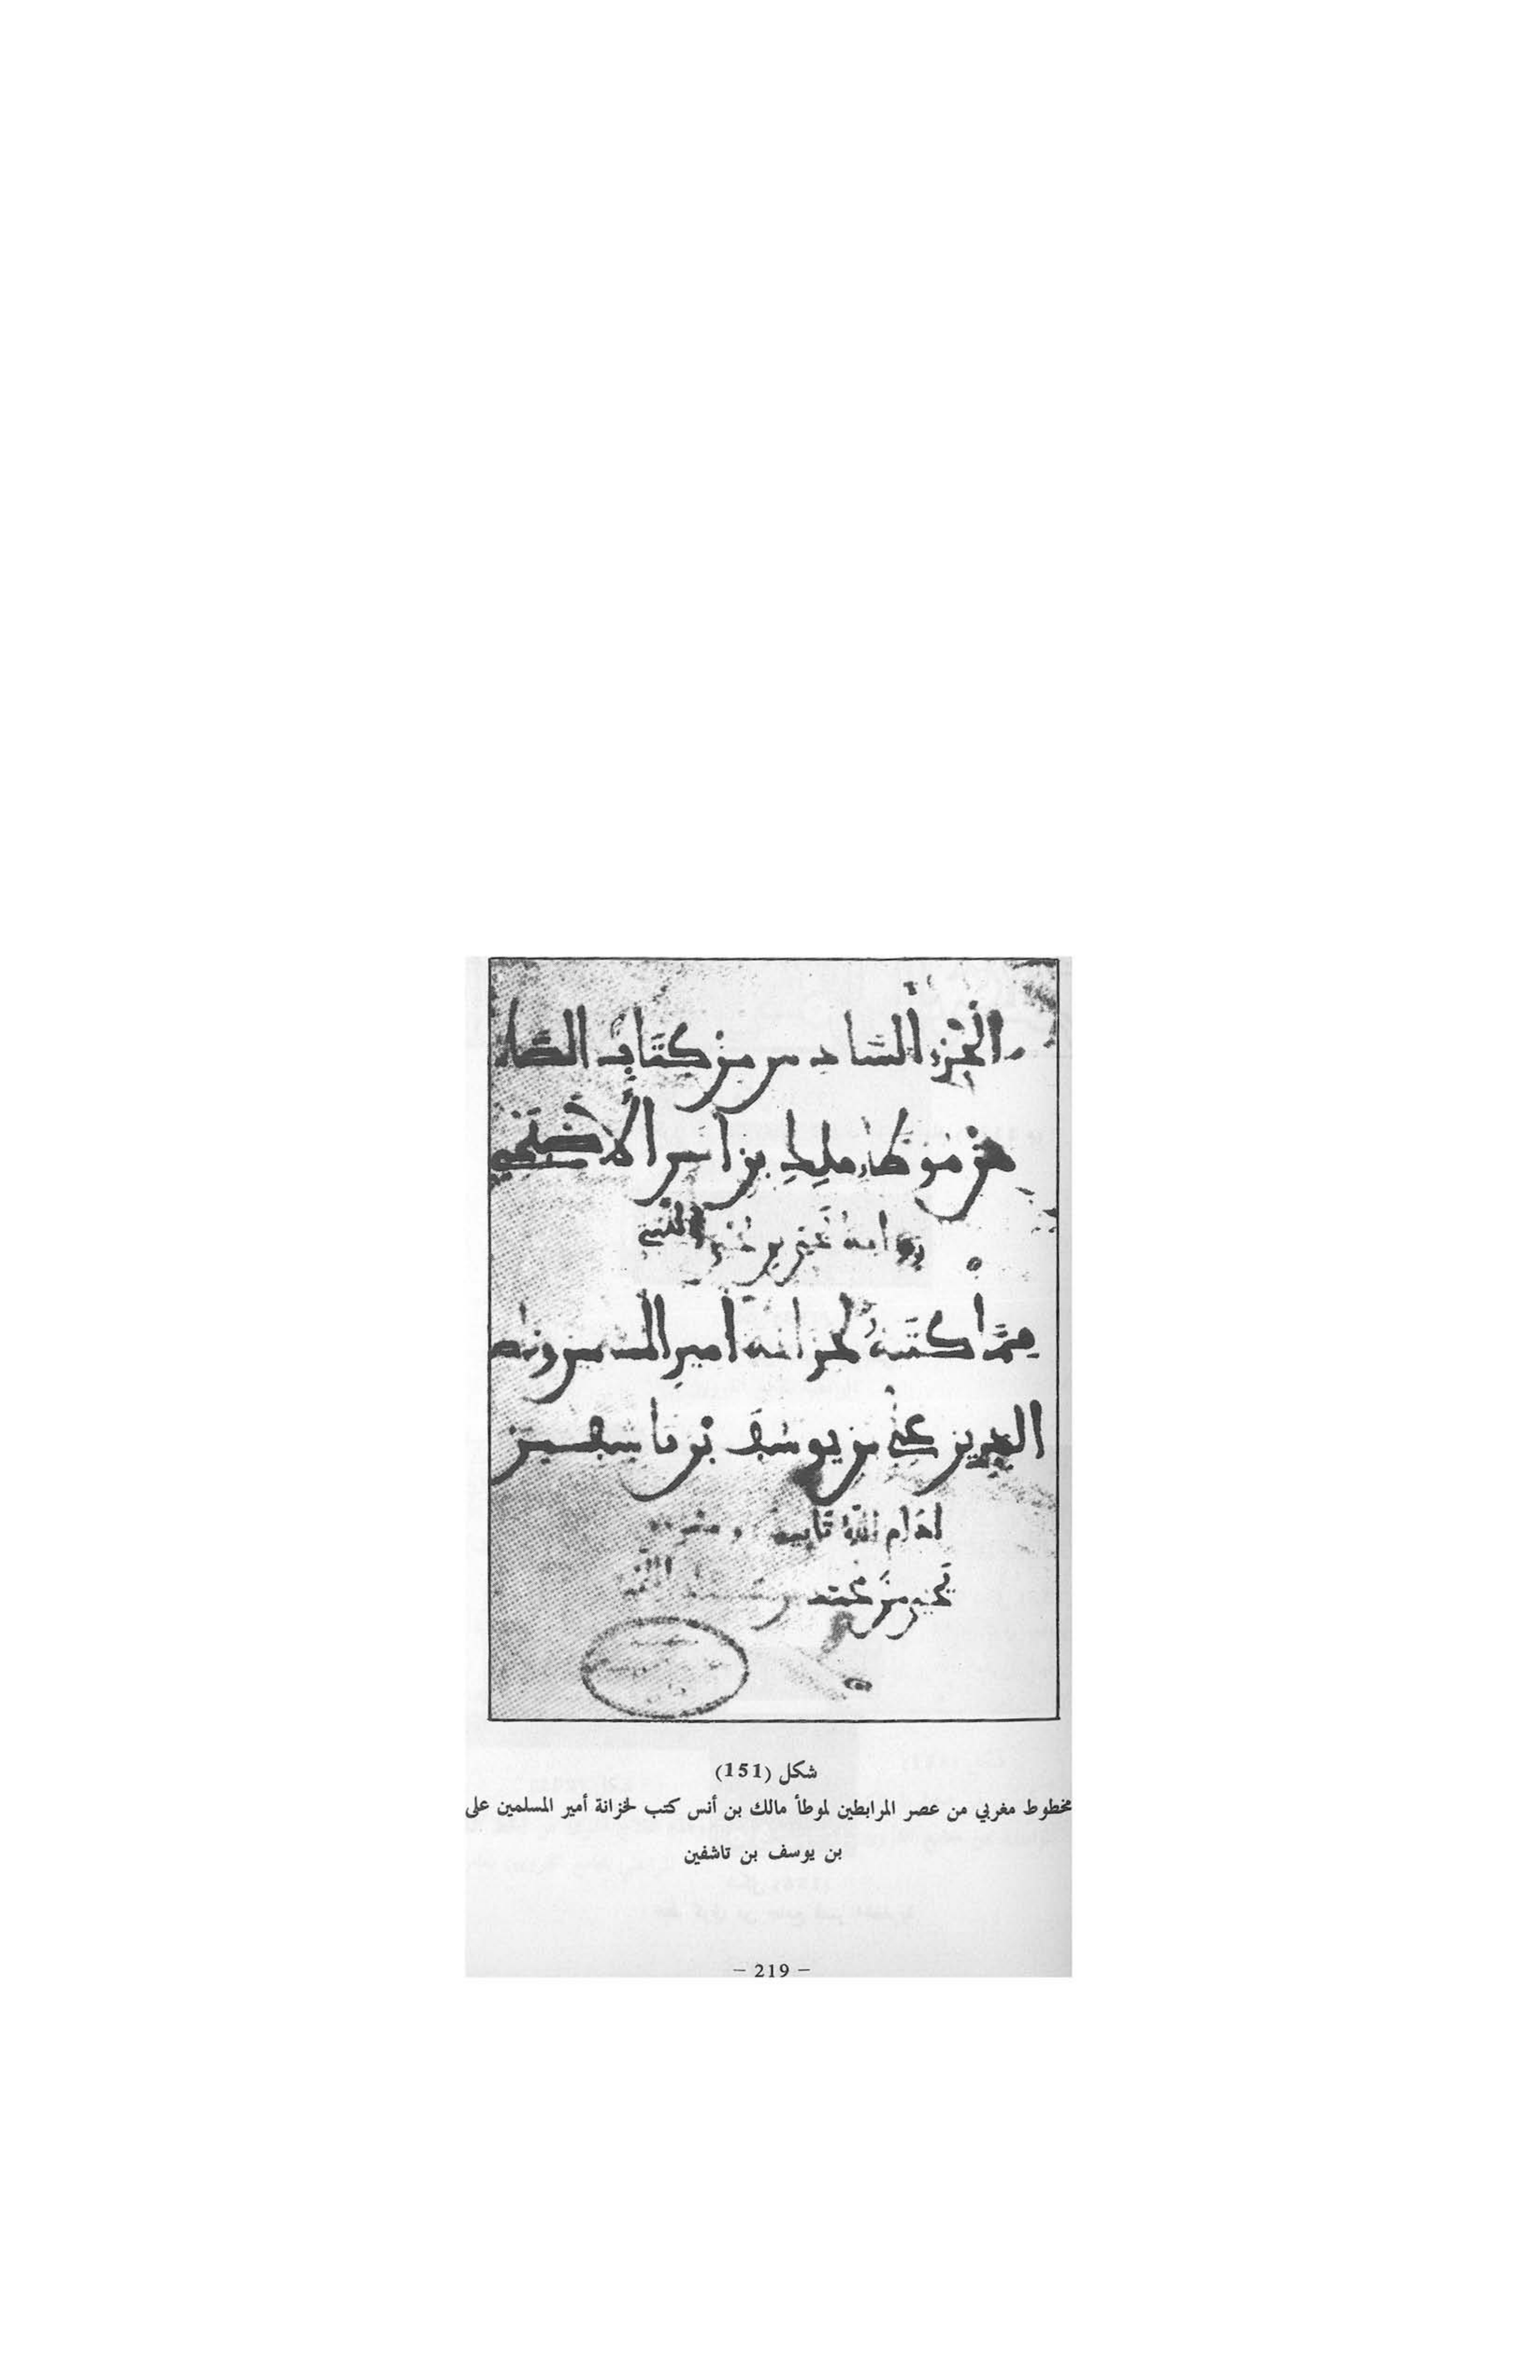 الجزء السادس من كتاب الصلا
من موطاء ملك بن انس الاصبحي
رواية يحيى بن يحيى الليثي
مما كتبه لخزانة امير المسلمين وناصر
الدين علي بن يوسف بن تاشفين
ادام الله تاييده
يحيى بن محمد بن
شكل (151)
مخطوط مغربي من عصر المرابطين لموطأ مالك بن أنس كتب لخزانة أمير المسلمين على
بن يوسف بن تاشفين
– 219 –